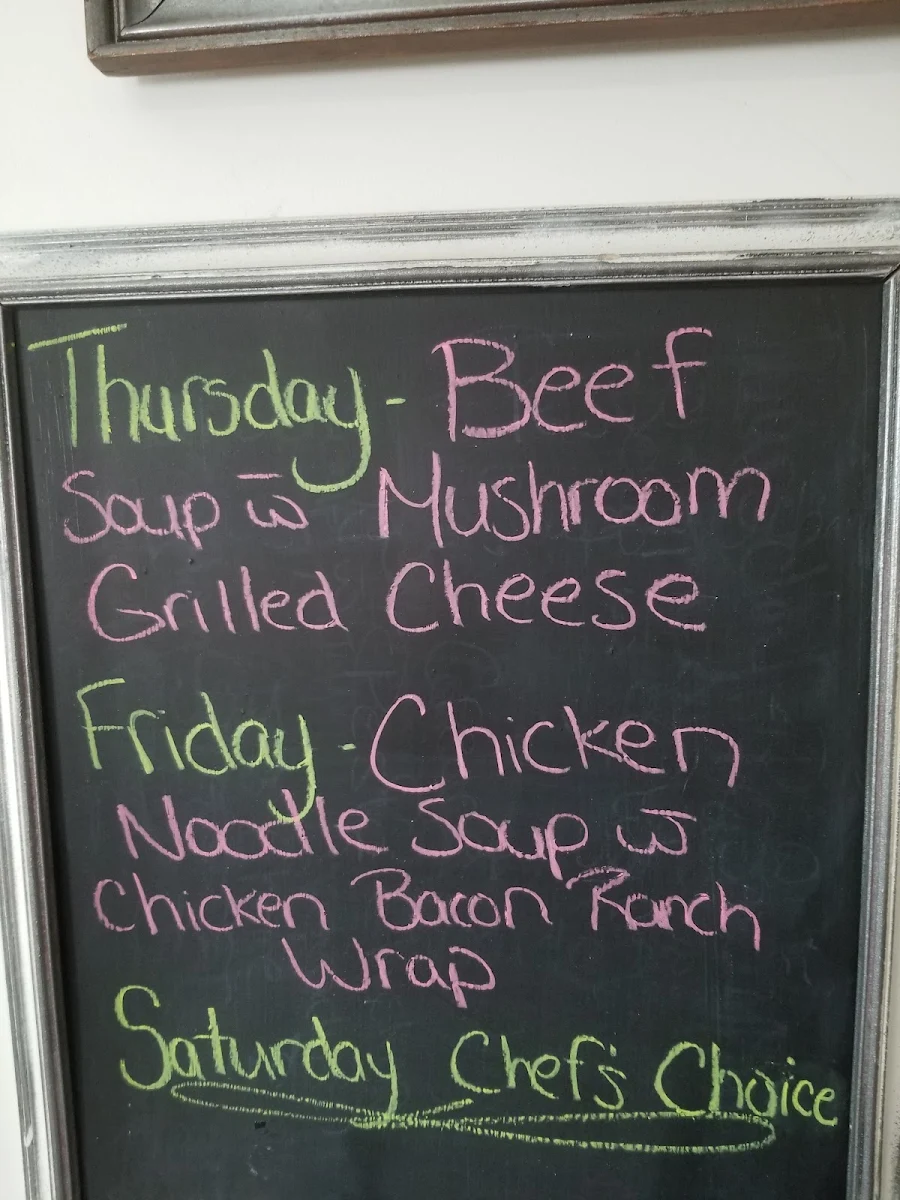 Thursday - Beef
Soup w̅ Mushroom
Grilled Cheese
Friday - Chicken
Noodle Soup w̅
Chicken Bacon Ranch
Wrap
Saturday Chef's Choice